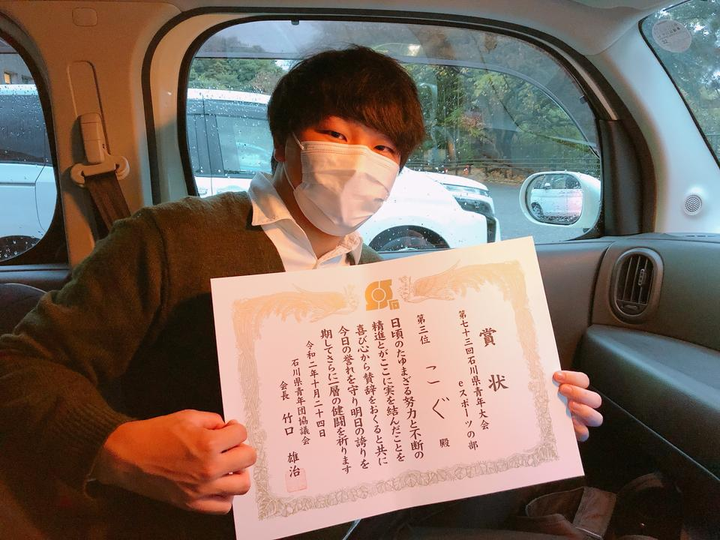 賞状
第七十三回石川県青年大会
eスポーツの部
第三位
こぐ 殿
日頃のたゆまざる努力と不断の
精進とがここに実を結んだことを
喜び心から賛辞をおくると共に
今日の誉れを守り明日の誇りを
期してさらに一層の健闘を祈ります
令和二年十月二十四日
石川県青年団協議会
会長 竹口 雄治